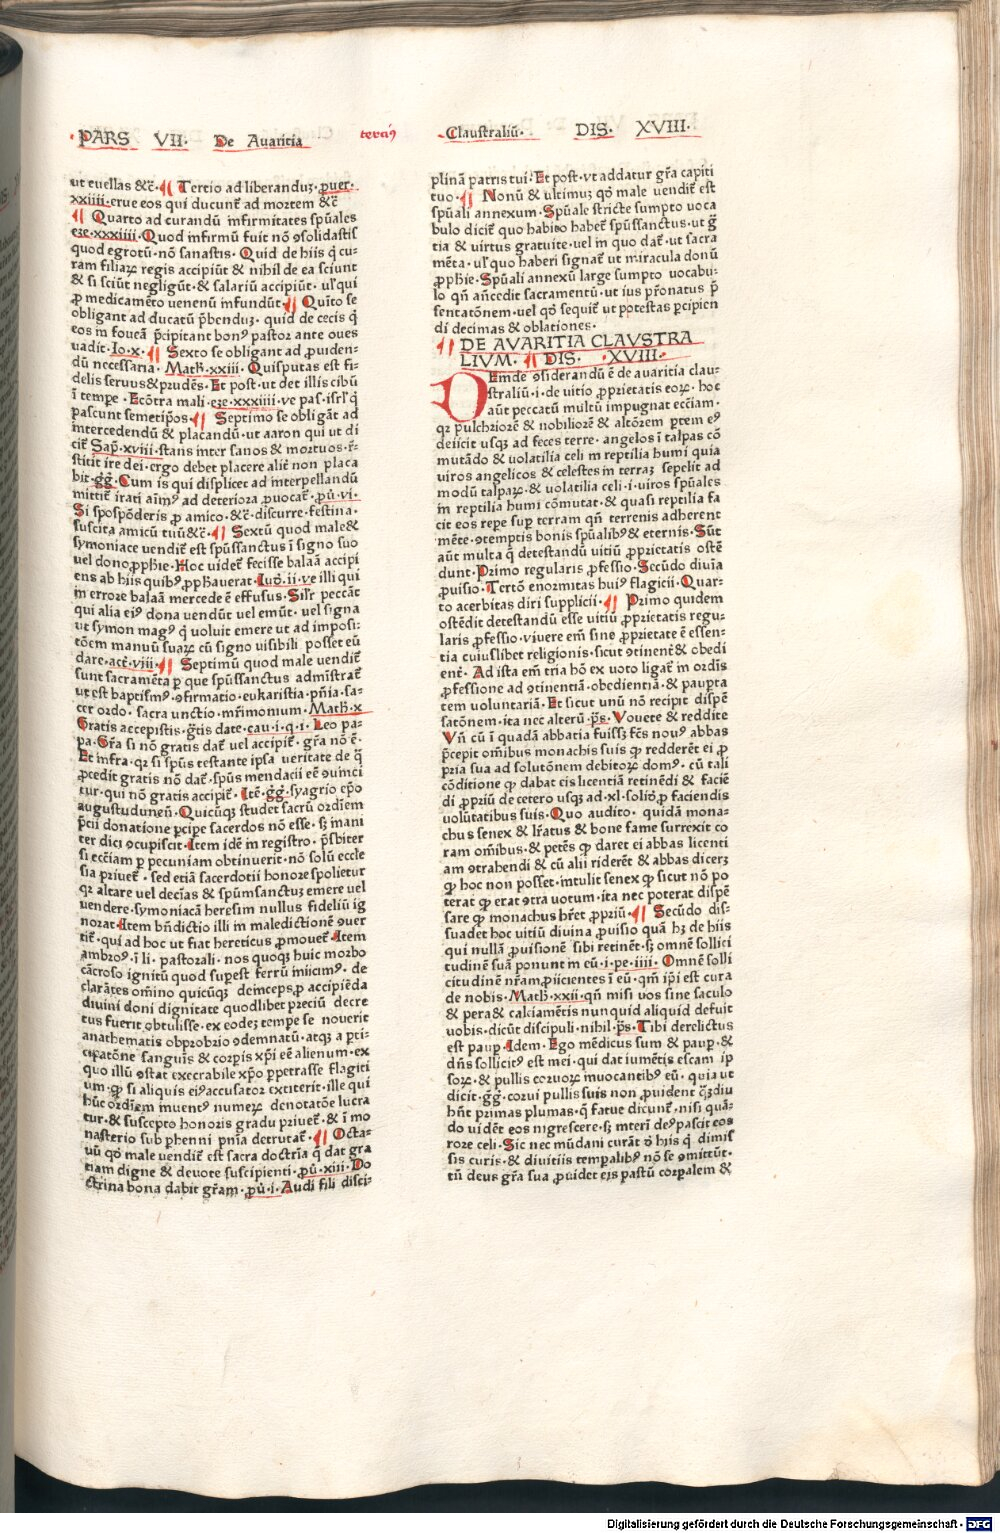 PARS VII. De Avaritia
terciꝰ
Claustraliū. DIS. XVIII.
ut euellas &c̄. ¶ Tertio ad liberanduꝫ. ꝓuer.
xxiiii. erue eos qui ducunt̄ ad mortem &c̄
¶ Quarto ad curandū infirmitates spūales
eze. xxxiiii. Quod infirmū fuit nō ꝯsolidastis
quod egrotū. nō sanastis. Quid de hiis q̄ cu-
ram filiaꝝ regis accipiūt & nihil de ea sciunt
& si sciūt negligūt. & salariū accipiūt. ul̓ qui
ꝓ medicamēto venenū infundūt. ¶ Quīto se
obligant ad ducatū p̄benduꝫ. quid de cecis q̄
eos in foueā p̄cipitant bonꝰ pastor ante oues
uadit. Io. x. ¶ Sexto se obligant ad ꝓuiden-
dū necessaria. Math̄. xxiii. Quisputas est fi-
delis seruus & prudēs. Et post. ut det illis cibū
ī tempe. Ecōtra mali. eze. xxxiiii. ve pas. isrl̓ q̄
pascunt semetip̄os. ¶ Septimo se obligāt ad
intercedendū & placandū. ut aaron qui ut di
cit̄ Sap̄. xviii. stans inter sanos & mortuos. r̄-
stitit ire dei. ergo debet placere aliēt non placa
bit. gḡ. Cum is qui displicet ad interpellandū
mittit̄ irati aīmꝰ ad deteriora ꝓuocat̄. ꝓū. vi.
Si spospōderis ꝓ amico. &c̄. discurre. festina.
suscita amicū tuū &c̄. ¶ Sextū quod male &
symoniace uendit̄ est spūssanctus ī signo suo
uel dono ꝓph̄ie. Hoc uidet̄ fecisse balaā accipi
ens ab hiis quibꝰ ꝓph̄auerat. Iud̄. ii. ve illi qui
in errore balaā mercede ē effusus. Sil̓r peccāt
qui alia eiꝰ dona vendūt uel emūt. vel signa
ut symon magꝰ q̄ uoluit emere ut ad imposi-
tōem manuū suaꝝ cū signo uisibili posset eū
dare. act̄. viii. ¶ Septimū quod male vendit̄
sunt sacramēta p que spūssanctus admīstrat̄
ut est baptismꝰ. ꝯfirmatio. eukaristia. pn̄ia. sa-
cer ordo. sacra unctio. mr̄imonium. Math̄. x
Gratis accepistis. gr̄tis date. cau. i. q. i. Leo pa-
pa. Gr̄a si nō gratis dat̄ vel accipit̄. gr̄a nō ē.
Et infra. qꝛ si spūs testante ipsa ueritate de q̄
ꝓcedit gratis nō dat̄. spūs mendacii eē ꝯuinci
tur. qui nō gratis accipit̄. Itē. gḡ. syagrio ep̄o
augustuduneū. Quicūqꝫ studet sacrū ordīem
p̄cii donatione pcipe sacerdos nō esse. sꝫ inani
ter dici ꝯcupiscit. Item idē in registro. p̄sbiter
si ecc̄iam p pecuniam obtinuerit. nō solū eccle
sia priuet̄. sed etiā sacerdotii honore spolietur
qꝛ altare uel decīas & spūmsanctuꝫ emere uel
vendere. symoniacā heresim nullus fideliū ig
norat. Item bn̄dictio illi in maledictionē ꝯuer
tit̄. qui ad hoc ut fiat hereticus ꝓmouet̄. Item
ambroꝰ. ī li. pastorali. nos quoqꝫ huic morbo
cācroso ignitū quod supest ferrū iniicimꝰ. de
clarātes om̄ino quicūqꝫ deinceps ꝓ accipiēda
diuini doni dignitate quodlibet preciū decre
tus fuerit obtulisse. ex eodeꝫ tempe se nouerit
anathematis obprobrio ꝯdemnatū. atqꝫ a pti-
cipatōne sanguis & corpis xp̄i eē alienum. ex
quo illū ꝯstat execrabile xp̄o ppetrasse flagiti
um. ꝙ si aliquis eiꝰ accusator extiterit. ille qui
hūc ordīem inuentꝰ numeꝝ denotatōe lucra
tur. & suscepto honoris gradu priuet̄. & ī mo
nasterio sub phenni pn̄ia detrutat̄. ¶ Octa-
uū qd̓ male vendit̄ est sacra doctrīa q̄ dat gra
tiam digne & deuote suscipienti. ꝓū. xiii. Do
ctrina bona dabit gr̄am. ꝓū. i. Audi fili disci-
plinā patris tui. Et post. vt addatur gr̄a capiti
tuo. ¶ Nonū & ultimuꝫ qd̓ male vendit̄ est
spūali annexum. Spūale stricte sumpto uoca
bulo dicit̄ quo habito habet̄ spūssanctus. ut ḡ
tia & virtus gratuite. uel in quo dat̄. ut sacra
mēta. ul̓ quo haberi signat̄ ut miracula donū
ꝓph̄ie. Spūali annexū large sumpto vocabu-
lo qn̄ an̄cedit sacramentū. ut ius pr̄onatus p̄
sentatōnem. uel qd̓ sequit̄ ut potestas pcipien
di decimas & oblationes.
¶ DE AVARITIA CLAVSTRA
LIVM. ¶ DIS. XVIII.
DEinde ꝯsiderandū ē de avaritia clau-
straliū. i. de uitio ꝓprietatis eoꝝ. hoc
aūt peccatū multū impugnat ecc̄iam.
qꝛ pulchriorē & nobiliorē & altiorem ptem eꝰ
deiicit usqꝫ ad feces terre. angelos ī talpas cō
mutādo & uolatilia celi in reptilia humi quia
uiros angelicos & celestes in terraꝫ sepelit ad
modū talpaꝝ. & uolatilia celi. i. uiros spūales
in reptilia humi cōmutat. & quasi reptilia fa
cit eos repe sup terram qn̄ terrenis adherent
mēte. ꝯtemptis bonis spūalibꝰ & eternis. Sūt
aūt multa q̄ detestandū uitiū ꝓprietatis ostē
dunt. Primo regularis ꝓfessio. Secūdo diuīa
ꝓuisio. Tertō enormitas huiꝰ flagicii. Quar-
to acerbitas diri supplicii. ¶ Primo quidem
ostēdit detestandū esse uitiū ꝓprietatis regu-
laris ꝓfessio. viuere em̄ sine ꝓprietate ē essen-
tia cuiuslibet religionis. sicut ꝯtinent̄ & obedi
ent̄. Ad ista em̄ tria hō ex voto ligat̄ in ordīs
ꝓfessione ad ꝯtinentiā. obedientiā. & paupta
tem voluntariā. Et sicut unū nō recipit dispē
satōnem. ita nec alterū. p̄s. Vouete & reddite
Vn̄ cū ī quadā abbatia fuissꝫ fc̄s nouꝰ abbas
p̄cepit om̄ibus monachis suis ꝙ redderēt ei ꝓ
pria sua ad solutōnem debitoꝝ domꝰ. cū tali
cōditione ꝙ dabat eis licentiā retinēdi & faciē
di ꝓpriū de cetero usqꝫ ad. xl. solid̓. ꝓ faciendis
uolūtatibus suis. Quo audito. quidā mona-
chus senex & lr̄atus & bone fame surrexit co
ram om̄ibus. & petēs ꝙ daret ei abbas licenti
am ꝯtrahendi & cū alii riderēt & abbas dicerꝫ
ꝙ hoc non posset. intulit senex ꝙ sicut nō po
terat ꝙ erat ꝯtra uotum. ita nec poterat dispē
sare ꝙ monachus hr̄et ꝓpriū. ¶ Secūdo dis-
suadet hoc uitiū diuina ꝓuisio quā hꝫ de hiis
qui nullā ꝓuisionē sibi retinēt. sꝫ omnē sollici
tudinē suā ponunt in eū. i. pe. iiii. Omnē solli
citudinē nr̄am ꝓiicientes ī eū. qm̄ ip̄i est cura
de nobis. Math̄. xxii. qn̄ misi uos sine saculo
& pera & calciamētis nunquid aliquid defuit
uobis. dicūt discipuli. nihil. p̄s. Tibi derelictus
est paup. Idem. Ego mēdicus sum & paup. &
dn̄s sollicitꝰ est mei. qui dat iumētis escam ip
soꝝ. & pullis coruoꝝ inuocantibꝰ eū. quia ut
dicit. gḡ. corui pullis suis non ꝓuident q̄ꝫdiu
hn̄t primas plumas. q̄ fatue dicunt̄. nisi quā-
do uidēt eos nigrescere. sꝫ interī deꝰ pascit eos
rore celi. Sic nec mūdani curāt ð hiis q̄ dimis
sis curis. & diuitiis temp̱alibꝰ nō se ꝯmittūt.
tn̄ deus gr̄a sua ꝓuidet eis pastū corpalem &
Digitalisierung gefördert durch die Deutsche Forschungsgemeinschaft - DFG